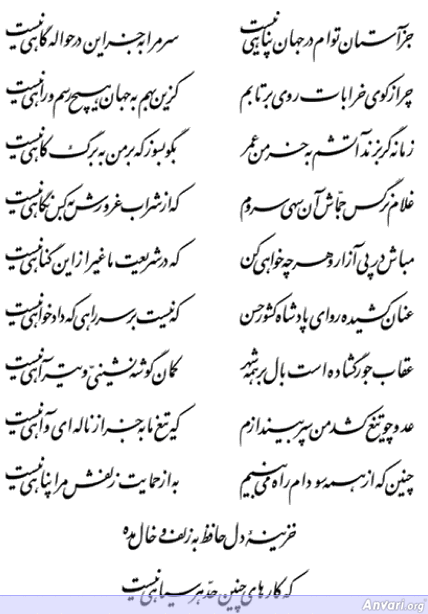 جز آستان توام در جهان پناهی نیست سر مرا به جز این در حواله گاهی نیست
چرا ز کوی خرابات روی برتابم کزین بهم به جهان هیچ رسم و راهی نیست
زمانه گر بزند آتشم به خرمن عمر بگو بسوز که بر من به برگ کاهی نیست
غلام نرگس جمّاش آن سهی سروم که از شراب غرورش به کس نگاهی نیست
مباش در پی آزار و هر چه خواهی کن که در شریعت ما غیر از این گناهی نیست
عنان کشیده رو ای پادشاه کشور حسن که نیست بر سر راهی که دادخواهی نیست
عقاب جور گشاده است بال بر همه شهر کمان گوشه نشینیّ و تیر آهی نیست
عدو چو تیغ کشد من سپر بیندازم که تیغ ما به جز از ناله ای و آهی نیست
چنین که از همه سو دام راه می بینم به از حمایت زلفش مرا پناهی نیست
خزینهٔ دل حافظ به زلف و خال مده
که کارهای چنین حدّ هر سیاهی نیست
Anvari.org